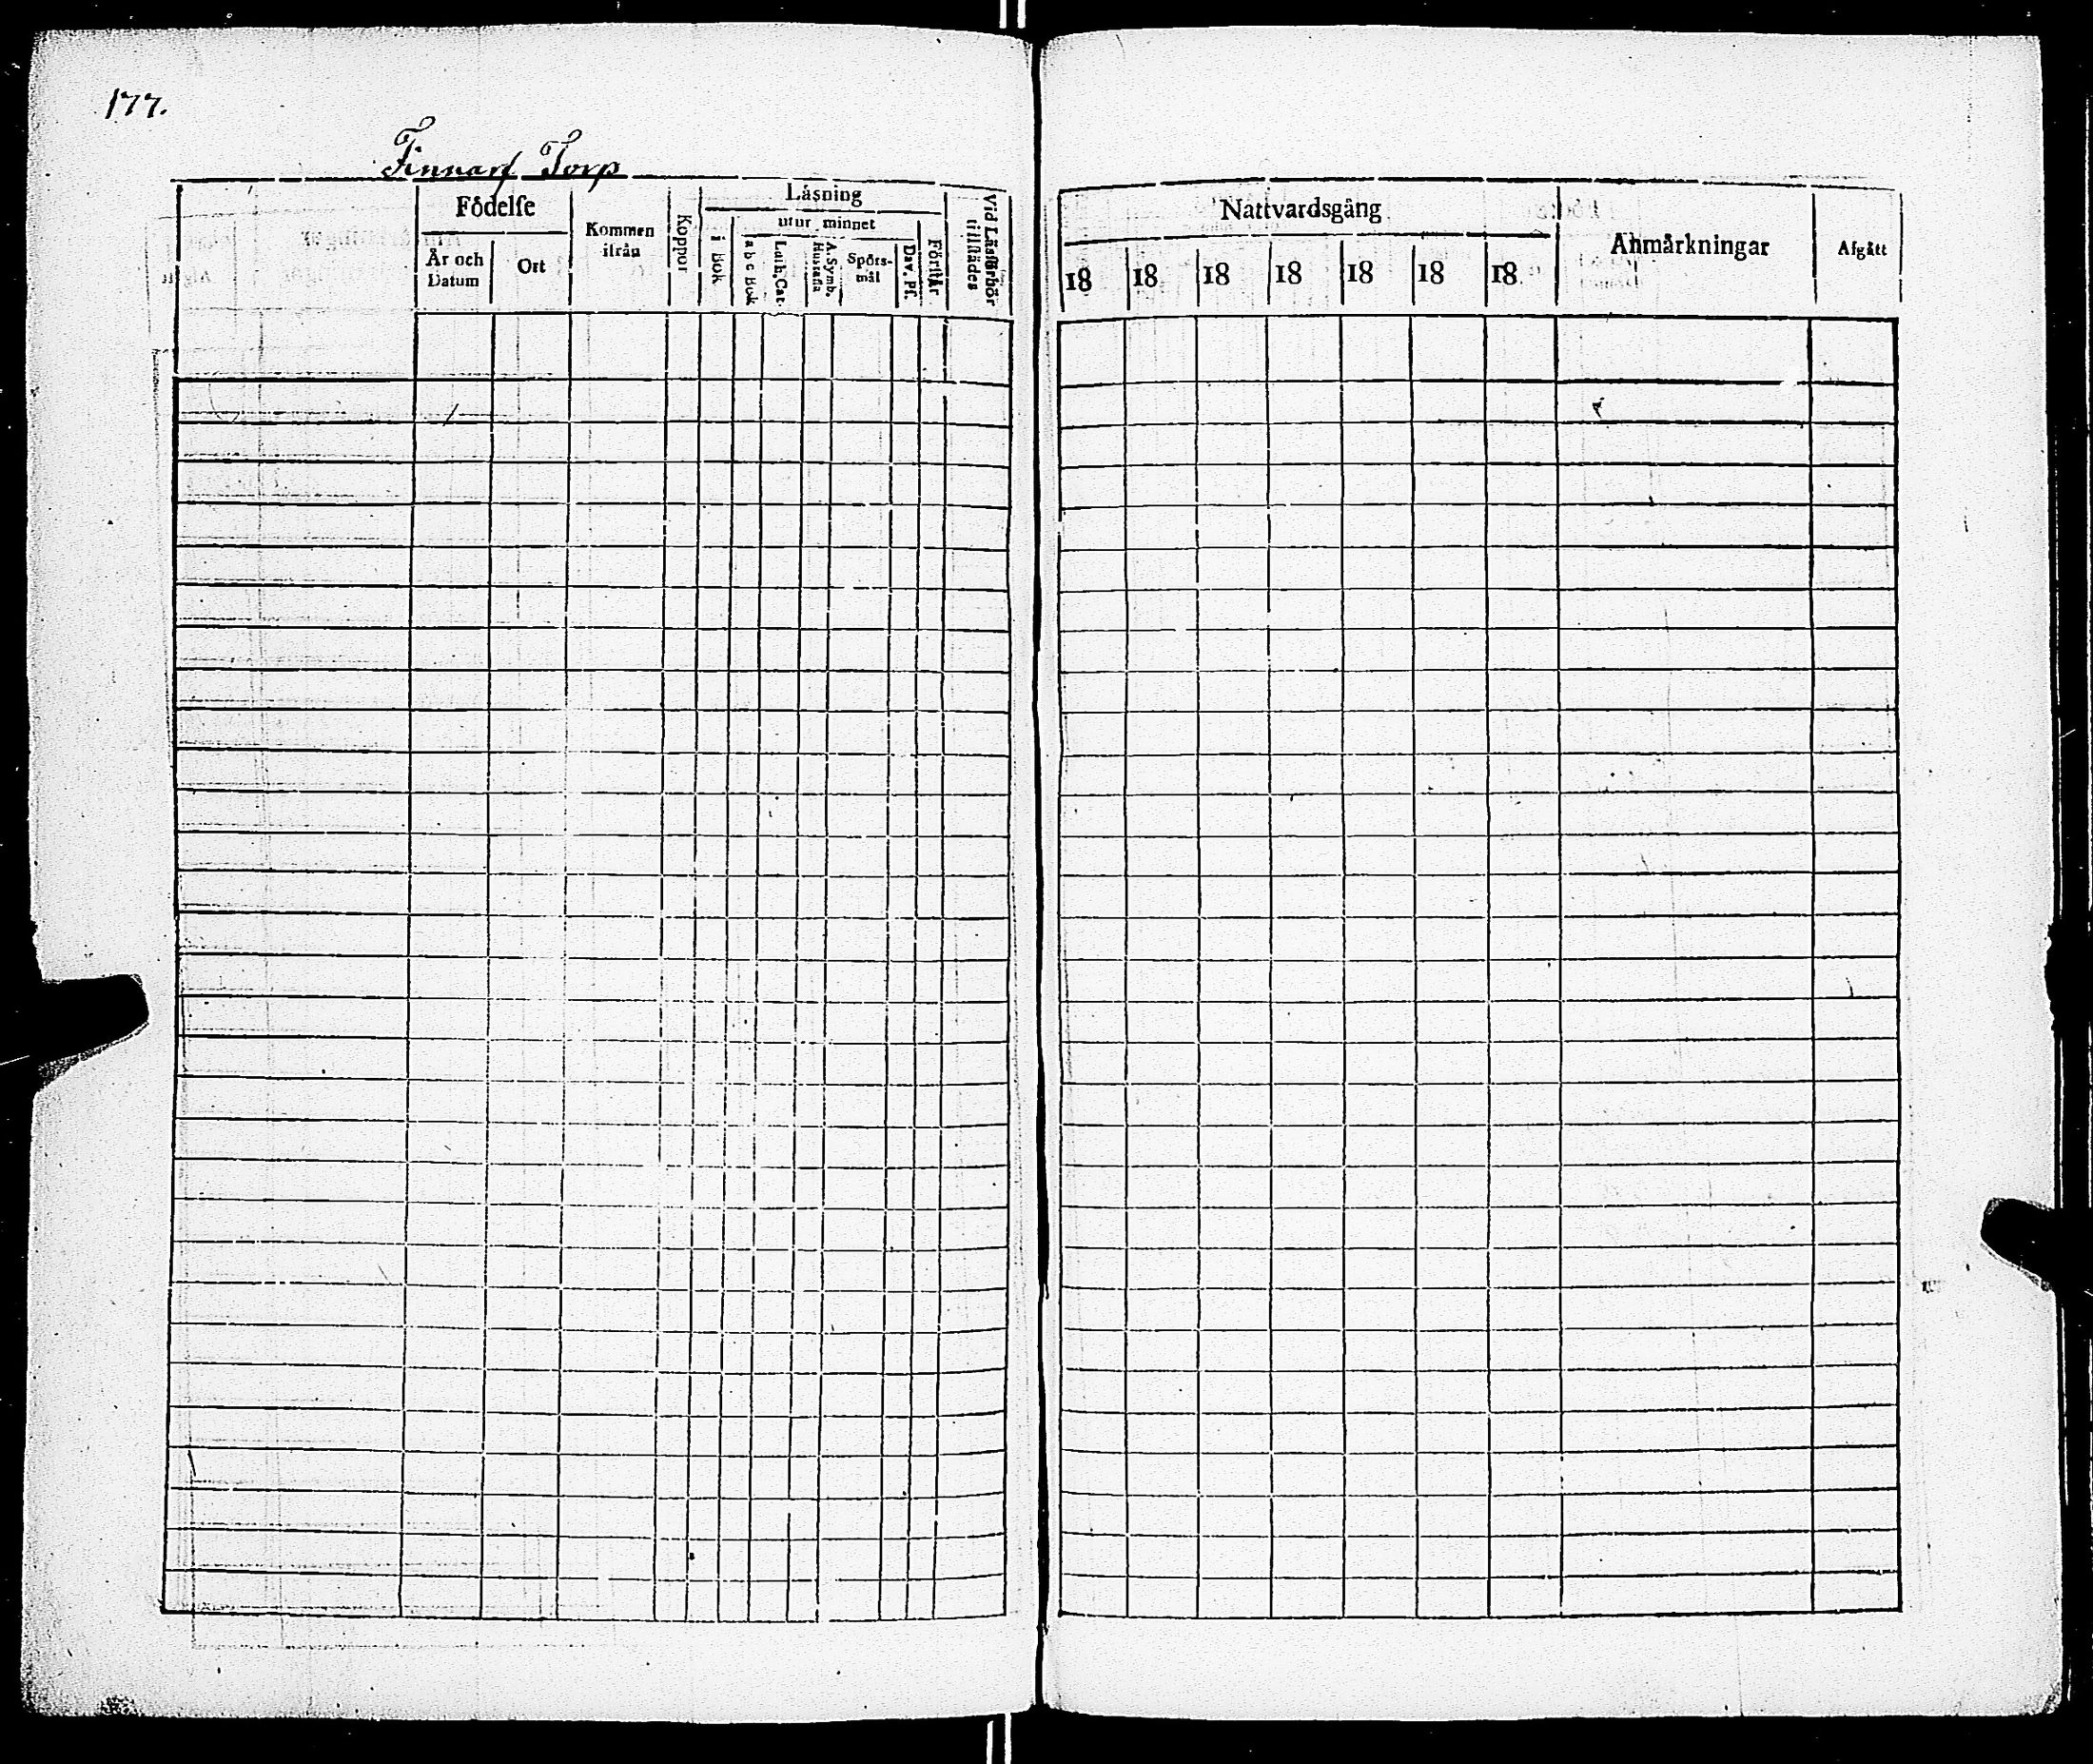 177.
Finnarf Torp
Födelſe
År och Datum
Ort
Kommen ifrån
Koppor
Läsning
i Bok
utur minnet
a b c Bok
Luth. Cat.
A. Symb. Hustafla
Spörs-mål
Dav. Pſ.
Förſtår
Vid Läsförhör tillſtädes
Nattvardsgång
18 18 18 18 18 18 18
Anmärkningar
Afgått